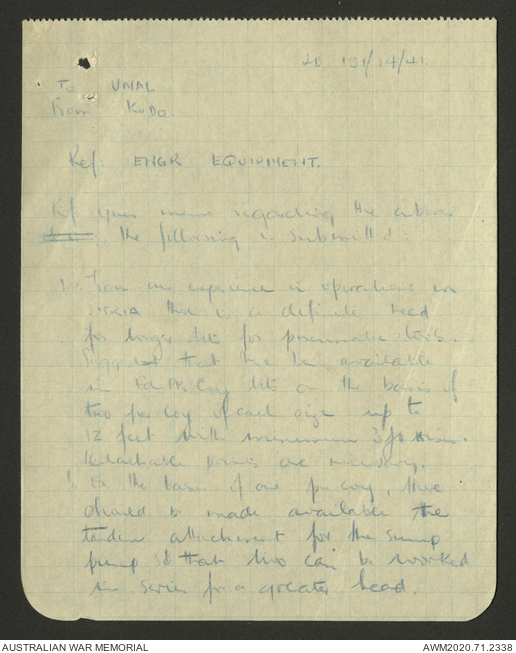 151/14/41
To UNAL
From KODO.
Ref: ENGR EQUIPMENT.
Ref your memo regarding the above
the following is submitted.
1. From our experience in operations in
SYRIA there is a definite need
for longer bits for pneumatic tools.
Suggest that there be available
in Fd Pk Coy bits on the basis of
two per coy of each size up to
12 feet with minimum 3
Detachable points are necessary.
On the basis of one per coy, there
should be made available the
tandem attachment for the sump
pump so that two can be worked
in series for a greater head.
AUSTRALIAN WAR MEMORIAL
AWM2020.71.2338